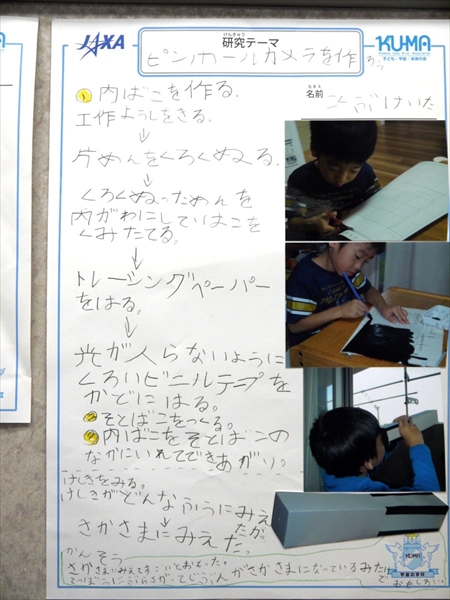 JAXA
けんきゅう
研究テーマ
KU-MA
子ども・宇宙・未来の会
ピンホールカメラを作ろう
なまえ
名前 こくぶけいた
① 内ばこを作る。
工作ようしをきる。
↓
片めんをくろくぬる。
↓
くろくぬっためんを
内がわにしていはこを
くみたてる。
↓
トレーシングペーパー
をはる。
↓
光が入らないように
くろいビニルテープを
かどにはる。
② そとばこをつくる。
③ 内ばこをそとばこの
なかにいれてできあがり。
けしきをみる。
けしきがどんなふうにみえたか。
↓
さかさまにみえた。
かんそう
さかさまにみえてすごいとおもった。
てつぼうにぶらさがってじぶんがさかさまになっているみたいで
おもしろい。
KU-MA
宇宙の学校